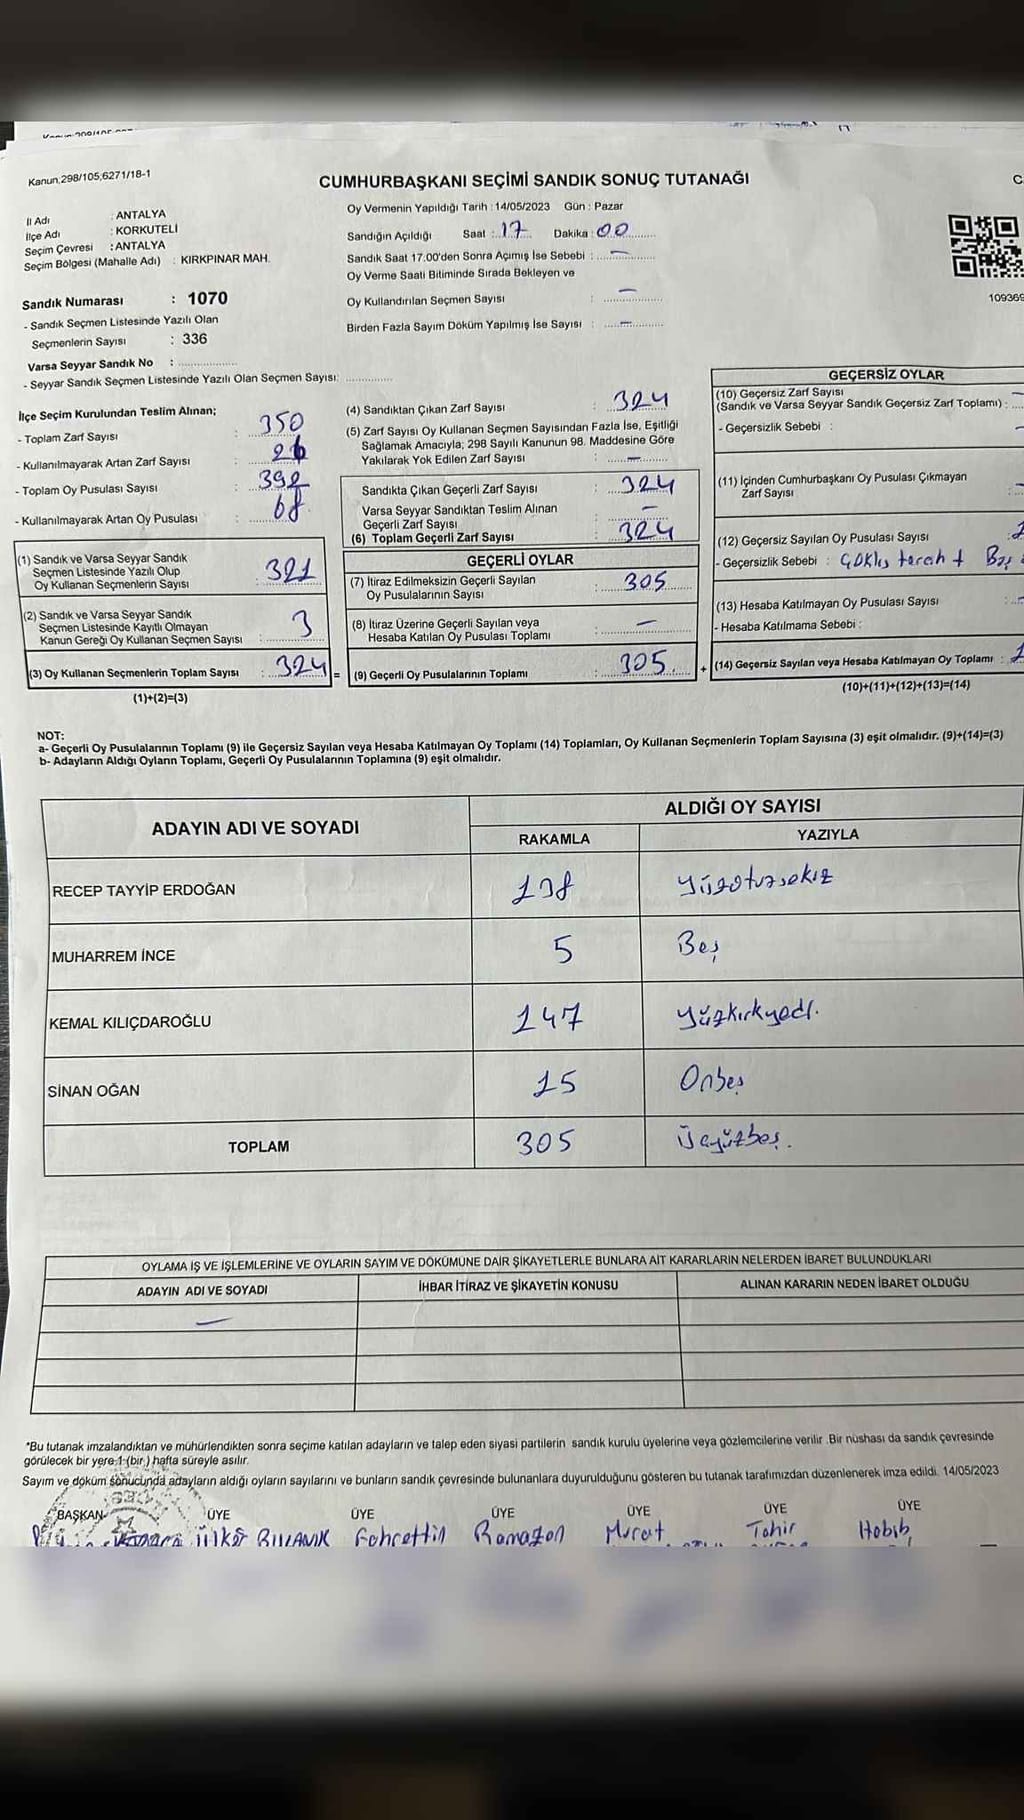 Kanun;298/105;6271/18-1
CUMHURBAŞKANI SEÇİMİ SANDIK SONUÇ TUTANAĞI
İl Adı : ANTALYA
İlçe Adı : KORKUTELİ
Seçim Çevresi : ANTALYA
Seçim Bölgesi (Mahalle Adı) : KIRKPINAR MAH.
Sandık Numarası : 1070
- Sandık Seçmen Listesinde Yazılı Olan
Seçmenlerin Sayısı : 336
Varsa Seyyar Sandık No : ..................
- Seyyar Sandık Seçmen Listesinde Yazılı Olan Seçmen Sayısı: ..............
Oy Vermenin Yapıldığı Tarih : 14/05/2023 Gün : Pazar
Sandığın Açıldığı Saat : 17 Dakika : 00
Sandık Saat 17.00'den Sonra Açımış İse Sebebi : —
Oy Verme Saati Bitiminde Sırada Bekleyen ve
Oy Kullandırılan Seçmen Sayısı : —
Birden Fazla Sayım Döküm Yapılmış İse Sayısı : —
109369
İlçe Seçim Kurulundan Teslim Alınan;
- Toplam Zarf Sayısı : 350
- Kullanılmayarak Artan Zarf Sayısı : 26
- Toplam Oy Pusulası Sayısı : 392
- Kullanılmayarak Artan Oy Pusulası : 68
(1) Sandık ve Varsa Seyyar Sandık
Seçmen Listesinde Yazılı Olup
Oy Kullanan Seçmenlerin Sayısı : 321
(2) Sandık ve Varsa Seyyar Sandık
Seçmen Listesinde Kayıtlı Olmayan
Kanun Gereği Oy Kullanan Seçmen Sayısı : 3
(3) Oy Kullanan Seçmenlerin Toplam Sayısı : 324 =
(1)+(2)=(3)
(4) Sandıktan Çıkan Zarf Sayısı : 324
(5) Zarf Sayısı Oy Kullanan Seçmen Sayısından Fazla İse, Eşitliği
Sağlamak Amacıyla; 298 Sayılı Kanunun 98. Maddesine Göre
Yakılarak Yok Edilen Zarf Sayısı : —
Sandıkta Çıkan Geçerli Zarf Sayısı : 324
Varsa Seyyar Sandıktan Teslim Alınan
Geçerli Zarf Sayısı : —
(6) Toplam Geçerli Zarf Sayısı : 324
GEÇERLİ OYLAR
(7) İtiraz Edilmeksizin Geçerli Sayılan
Oy Pusulalarının Sayısı : 305
(8) İtiraz Üzerine Geçerli Sayılan veya
Hesaba Katılan Oy Pusulası Toplamı : —
(9) Geçerli Oy Pusulalarının Toplamı : 305 +
GEÇERSİZ OYLAR
(10) Geçersiz Zarf Sayısı
(Sandık ve Varsa Seyyar Sandık Geçersiz Zarf Toplamı) :
- Geçersizlik Sebebi :
(11) İçinden Cumhurbaşkanı Oy Pusulası Çıkmayan
Zarf Sayısı
(12) Geçersiz Sayılan Oy Pusulası Sayısı
- Geçersizlik Sebebi :
(13) Hesaba Katılmayan Oy Pusulası Sayısı :
- Hesaba Katılmama Sebebi :
(14) Geçersiz Sayılan veya Hesaba Katılmayan Oy Toplamı :
(10)+(11)+(12)+(13)=(14)
NOT:
a- Geçerli Oy Pusulalarının Toplamı (9) ile Geçersiz Sayılan veya Hesaba Katılmayan Oy Toplamı (14) Toplamları, Oy Kullanan Seçmenlerin Toplam Sayısına (3) eşit olmalıdır. (9)+(14)=(3)
b- Adayların Aldığı Oyların Toplamı, Geçerli Oy Pusulalarının Toplamına (9) eşit olmalıdır.
ADAYIN ADI VE SOYADI
ALDIĞI OY SAYISI
RAKAMLA YAZIYLA
RECEP TAYYİP ERDOĞAN 138 Yüzotuzsekiz
MUHARREM İNCE 5 Beş
KEMAL KILIÇDAROĞLU 147 Yüzkırkyedi.
SİNAN OĞAN 15 Onbeş
TOPLAM 305 Üçyüzbeş.
OYLAMA İŞ VE İŞLEMLERİNE VE OYLARIN SAYIM VE DÖKÜMÜNE DAİR ŞİKAYETLERLE BUNLARA AİT KARARLARIN NELERDEN İBARET BULUNDUKLARI
ADAYIN ADI VE SOYADI İHBAR İTİRAZ VE ŞİKAYETİN KONUSU ALINAN KARARIN NEDEN İBARET OLDUĞU
—
*Bu tutanak imzalandıktan ve mühürlendikten sonra seçime katılan adayların ve talep eden siyasi partilerin sandık kurulu üyelerine veya gözlemcilerine verilir .Bir nüshası da sandık çevresinde
görülecek bir yere 1 (bir ) hafta süreyle asılır.
Sayım ve döküm sonucunda adayların aldığı oyların sayılarını ve bunların sandık çevresinde bulunanlara duyurulduğunu gösteren bu tutanak tarafımızdan düzenlenerek imza edildi. 14/05/2023
BAŞKAN ÜYE ÜYE ÜYE ÜYE ÜYE ÜYE
ülkü Fahrettin Ramazan Murat Tahir Habib